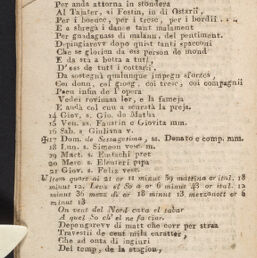 Per anda attorna in stondera
Al Teater, ai Festin, in di Ostarii,
Per i boeucc, per i tresc, per i bordii...
E a strengà i dane tant malament
Per guadagnass di malann, del pentiment.
Depingiarevv dopo quist tanti spacconi
Che se glorien da ess person de mond
E da stà a botta a tutt,
D'ess de tutt i cottarii,
Da sostegni qualunque impegn sforzos
Coi donn, col gioeug, coi tresc, coi compagnii
Pœu infin de l'opera
Vedei rovinaa ler, e la fameja
E andà coi cuu a scuratà la preja.
14 Giov. s. Gio. da Matha
15 Ven. ss. Faustin e Giovita mm.
16 Sab. s. Giuliana v.
Dom. de Sessagesima, ss. Donato e comp. mm.
18 Lun. s. Simeon vesc. m.
19 Mart. ss. Eutichi pret
20 Merc s. Eleuteri pipa
21 Giov. s. Felix vesc.
Ultem quart ai 21 or 11 minut 59 mattina or ital. 18
minut 12. Leva el So a or 6 minut 48 or ital. 12
minut 36 mezz dì or 18 minut 13 mezzanott or 6
minut 13
On vent del Nord cava el tabar
A quel So ch'el ne fa ciar
Depengarevv di matt che corr per strra
Travestii de cent mila caratter,
Che ad onta di ingiuri
Del temp, de la stagion,